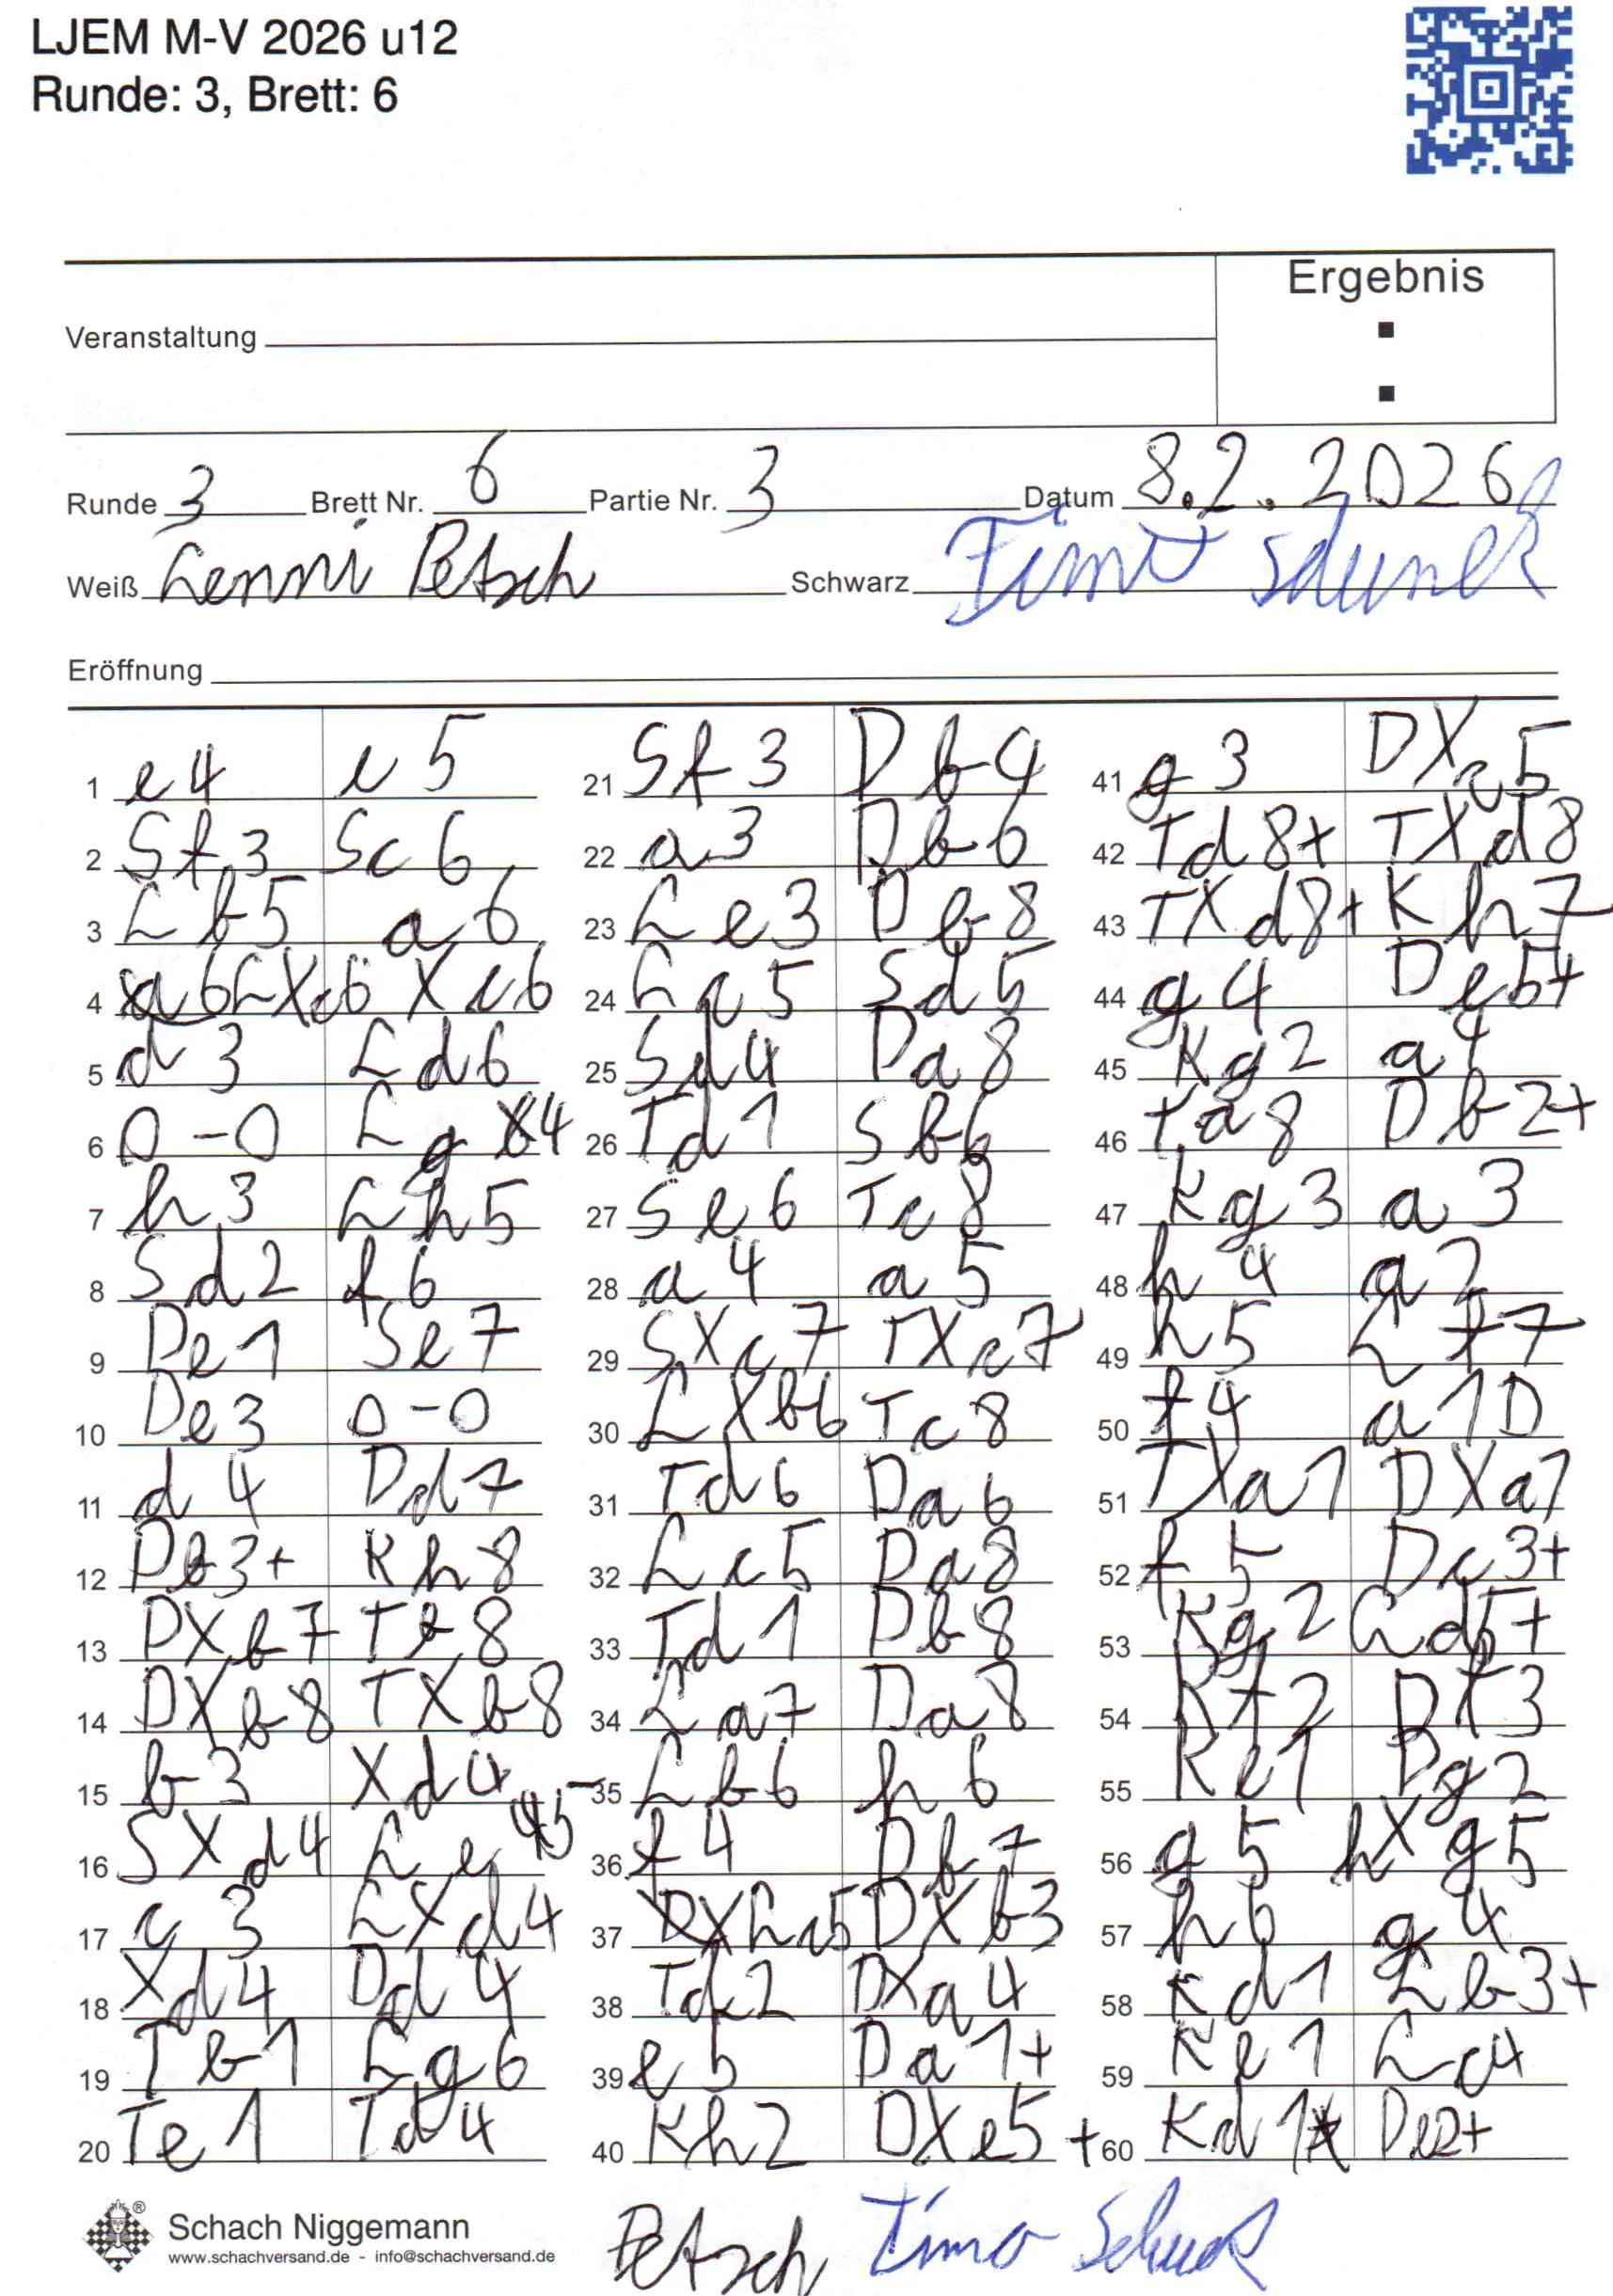 LJEM M-V 2026 u12
Runde: 3, Brett: 6
Ergebnis
:
Veranstaltung
Runde 3 Brett Nr. 6 Partie Nr. 3 Datum 8.2.2026
Weiß Lenni Petsch Schwarz Timo
Eröffnung
1 e4 e5 21 Sf3 Db4 41 g3 DXc5
2 Sf3 Sc6 22 a3 Db6 42 Td8+ TXd8
3 Lb5 a6 23 Le3 Db8 43 TXd8+ Kh7
4 LXc6 Xc6 24 Lc5 Sd5 44 g4 De5+
5 d3 Ld6 25 Sd4 Da8 45 Kg2 a4
6 0-0 Lg4 26 Td1 Sb6 46 Ta8 Db2+
7 h3 Lh5 27 Se6 Tc8 47 Kg3 a3
8 Sd2 f6 28 a4 a5 48 h4 a2
9 De1 Se7 29 SXc7 TXc7 49 h5 Lf7
10 De3 0-0 30 LXb6 Tc8 50 f4 a1D
11 d4 Dd7 31 Td6 Da6 51 TXa1 DXa1
12 Db3+ Kh8 32 Lc5 Da8 52 f5 Dc3+
13 DXb7 Tb8 33 Td1 Db8 53 Kg2 Ld5+
14 DXb8 TXb8 34 La7 Da8 54 Kf2 Df3
15 b3 Xd4 35 Lb6 h6 55 Ke1 Dg2
16 SXd4 Le5 36 f4 Db7 56 g5 hXg5
17 c3 LXd4 37 Lc5 DXb3 57 h6 g4
18 Xd4 Dd4 38 Td2 DXa4 58 Kd1 Lb3+
19 Tb1 Lg6 39 e5 Da1+ 59 Ke1 Lc4
20 Te1 Td4 40 Kh2 DXe5+ 60 Kd1 De2+
Schach Niggemann
www.schachversand.de - info@schachversand.de
Petsch Timo